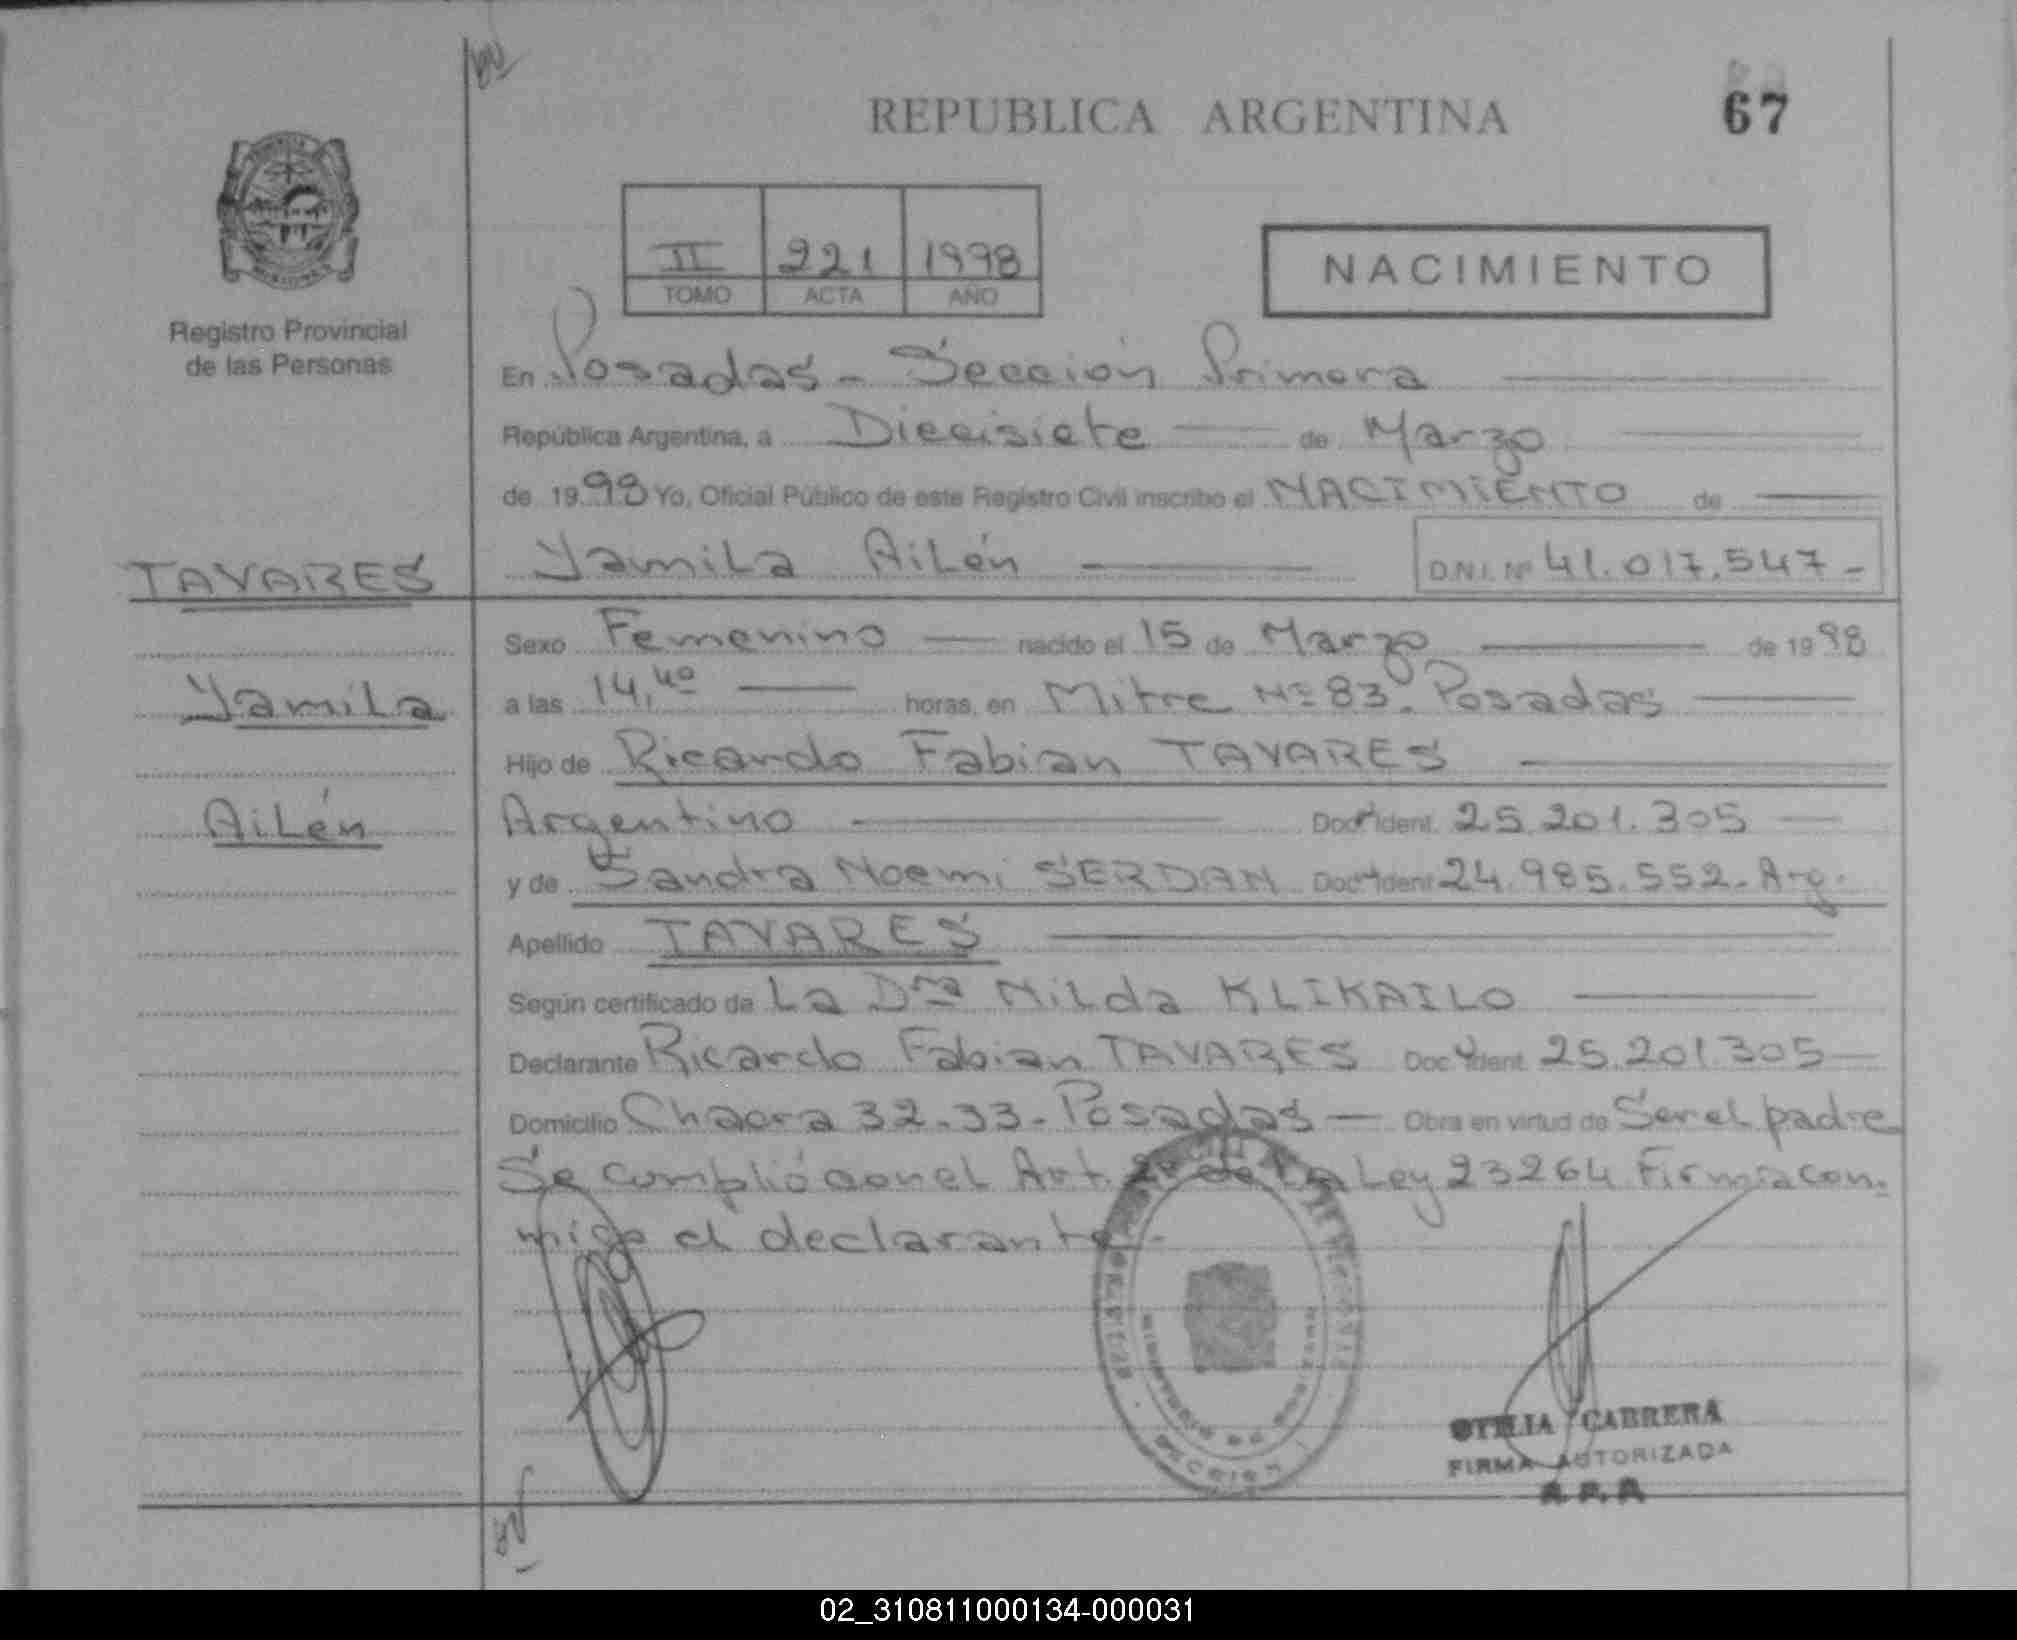 REPUBLICA ARGENTINA
67
II 221 1998
TOMO ACTA AÑO
NACIMIENTO
Registro Provincial
de las Personas
En Posadas - Sección Primera
República Argentina, a Diecisiete de Marzo
de 1998 Yo, Oficial Público de este Registro Civil inscribo el NACIMIENTO de
Yamila Ailén D.N.I. Nº 41.017.547-
TAVARES
Yamila
Ailén
Sexo Femenino nacido el 15 de Marzo de 1998
a las 14,40 horas, en Mitre Nº 83. Posadas
Hijo de Ricardo Fabian TAVARES
Argentino Doc. Ident. 25.201.305
y de Sandra Noemi SERDAN Doc. Ident. 24.985.552- Arg.
Apellido TAVARES
Según certificado de La Dra Nilda KLIKAILO
Declarante Ricardo Fabian TAVARES Doc. Ident. 25.201.305
Domicilio Chacra 32-33- Posadas Obra en virtud de Ser el padre
Se cumplió con el Art. 2º de La Ley 23264 Firma con-
migo el declarante.
MINISTERIO DE
SECCION
OTILIA CABRERA
FIRMA AUTORIZADA
02_310811000134-000031